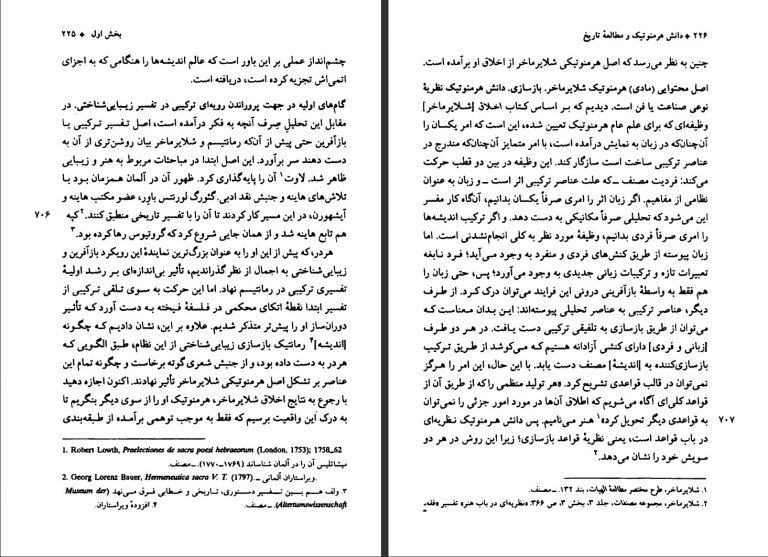 بخش اول ❖ ۲۲۵
چشم‌انداز عملی بر این باور است که عالم اندیشه‌ها را هنگامی که به اجزای
اتمی‌اش تجزیه کرده است، دریافته است.
گام‌های اولیه در جهت پروراندن رویه‌ای ترکیبی در تفسیر زیبایی‌شناختی. در
مقابل این تحلیلِ صِرف آنچه به فکر درآمده است، اصل تفسیر ترکیبی یا
بازآفرین حتی پیش از آن‌که رمانتیسم و شلایرماخر بیان روشن‌تری از آن به
دست دهند سر برآورد. این اصل ابتدا در مباحثات مربوط به هنر و زیبایی
ظاهر شد. لاوت۱ آن را پایه‌گذاری کرد. ظهور آن در آلمان همزمان بود با
تلاش‌های هاینه و جنبش نقد ادبی. گئورگ لورنتس باوِر، عضو مکتب هاینه و
آیشهورن، در این مسیر کار کردند تا آن را با تفسیر تاریخی منطبق کنند.۲ کپه
۷۰۶
هم تابع هاینه شد و از همان جایی شروع کرد که گروتیوس رها کرده بود.۳
هردر، که پیش از این او را به عنوان بزرگ‌ترین نمایندهٔ این رویکرد بازآفرین و
زیبایی‌شناختی به اجمال از نظر گذراندیم، تأثیر بی‌اندازه‌ای بر رشد اولیهٔ
تفسیری ترکیبی در رمانتیسم نهاد. اما این حرکت به سوی تلقی ترکیبی از
تفسیر ابتدا نقطهٔ اتکای محکمی در فلسفهٔ فیخته به دست آورد که تأثیر
دوران‌ساز او را پیش‌تر متذکر شدیم. علاوه بر این، نشان دادیم که چگونه
[اندیشه]۴ رمانتیک بازسازی زیبایی‌شناختی از این نظام، طبق الگویی که
هردر به دست داده بود، و از جنبش شعری گوته برخاست و چگونه تمام این
عناصر بر تشکل اصل هرمنوتیکی شلایرماخر تأثیر نهادند. اکنون اجازه دهید
با رجوع به نتایج اخلاق شلایرماخر، هرمنوتیک او را از سوی دیگر بنگریم تا
به درک این واقعیت برسیم که فقط به موجب توهمی برآمده از طبقه‌بندی
1. Robert Lowth, Praelectiones de sacra poesi hebraeorum (London, 1753); 1758_62
میشائلیس آن را در آلمان شناساند (۱۷۶۹–۱۷۷۰). ــ مصنف.
2. Georg Lorenz Bauer, Hermeneutica sacra V. T. (1797). ــ ویراستاران آلمانی.
۳. ولف هم بین تفسیر دستوری، تاریخی و خطابی فرق می‌نهد (Museum der
Altertumswissenschaft). ــ مصنف. ۴. افزودهٔ ویراستاران.
۲۲۶ ❖ دانش هرمنوتیک و مطالعهٔ تاریخ
چنین به نظر می‌رسد که اصل هرمنوتیکی شلایرماخر از اخلاق او برآمده است.
اصل محتوایی (مادی) هرمنوتیک شلایرماخر. بازسازی. دانش هرمنوتیک نظریهٔ
نوعی صناعت یا فن است. دیدیم که بر اساس کتاب اخلاق [شلایرماخر]
وظیفه‌ای که برای علم عام هرمنوتیک تعیین شده، این است که امر یکسان را
آن‌چنان‌که در زبان به نمایش درآمده است، با امر متمایز آن‌چنان‌که مندرج در
عناصر ترکیبی ساخت است سازگار کند. این وظیفه در بین دو قطب حرکت
می‌کند: فردیت مصنف ــ که علت عناصر ترکیبی اثر است ــ و زبان به عنوان
نظامی از مفاهیم. اگر زبان اثر را امری صرفاً یکسان بدانیم، آن‌گاه کار مفسر
این می‌شود که تحلیلی صرفاً مکانیکی به دست دهد. و اگر ترکیب اندیشه‌ها
را امری صرفاً فردی بدانیم، وظیفهٔ مورد نظر به کلی انجام‌نشدنی است. اما
زبان پیوسته از طریق کنش‌های فردی و منفرد به وجود می‌آید؛ فرد نابغه
تعبیرات تازه و ترکیبات زبانی جدیدی به وجود می‌آورد؛ پس، حتی زبان را
هم فقط به واسطهٔ بازآفرینی درونی این فرایند می‌توان درک کرد. از طرف
دیگر، عناصر ترکیبی به عناصر تحلیلی پیوسته‌اند: این بدان معناست که
می‌توان از طریق بازسازی به تلفیقی ترکیبی دست یافت. در هر دو طرف
[زبانی و فردی] دارای کنشی آزادانه هستیم که می‌کوشد از طریق ترکیب
بازسازی‌کننده به [اندیشهٔ] مصنف دست یابد. با این حال، این امر را هرگز
نمی‌توان در قالب قواعدی تشریح کرد. «هر تولید منظمی را که از طریق آن از
قواعد کلی‌ای آگاه می‌شویم که اطلاق آن‌ها در مورد امور جزئی را نمی‌توان
به قواعدی دیگر تحویل کرد»۱ هنر می‌نامیم. پس دانش هرمنوتیک نظریه‌ای
۷۰۷
در باب قواعد است، یعنی نظریهٔ قواعد بازسازی؛ زیرا این روش در هر دو
سویش خود را نشان می‌دهد.۲
۱. شلایرماخر، طرح مختصر مطالعهٔ الهیات، بند ۱۳۲. ــ مصنف.
۲. شلایرماخر، مجموعه مصنفات، جلد ۳، بخش ۳، ص ۳۶۶: «نظریه‌ای در باب هنر» تفسیر «فقه،